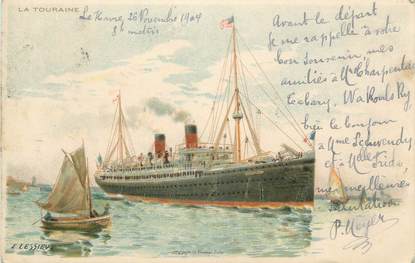 LA TOURAINE
Le Havre, 26 Novembre 1904
8h matin
Avant le départ
je me rappelle à votre
bon souvenir, mes
amitiés à Mr Charpentier
bien le bonjour
à Mme
et à Mme
mes meilleures
salutations
P. Meyer
E. LESSIEUX